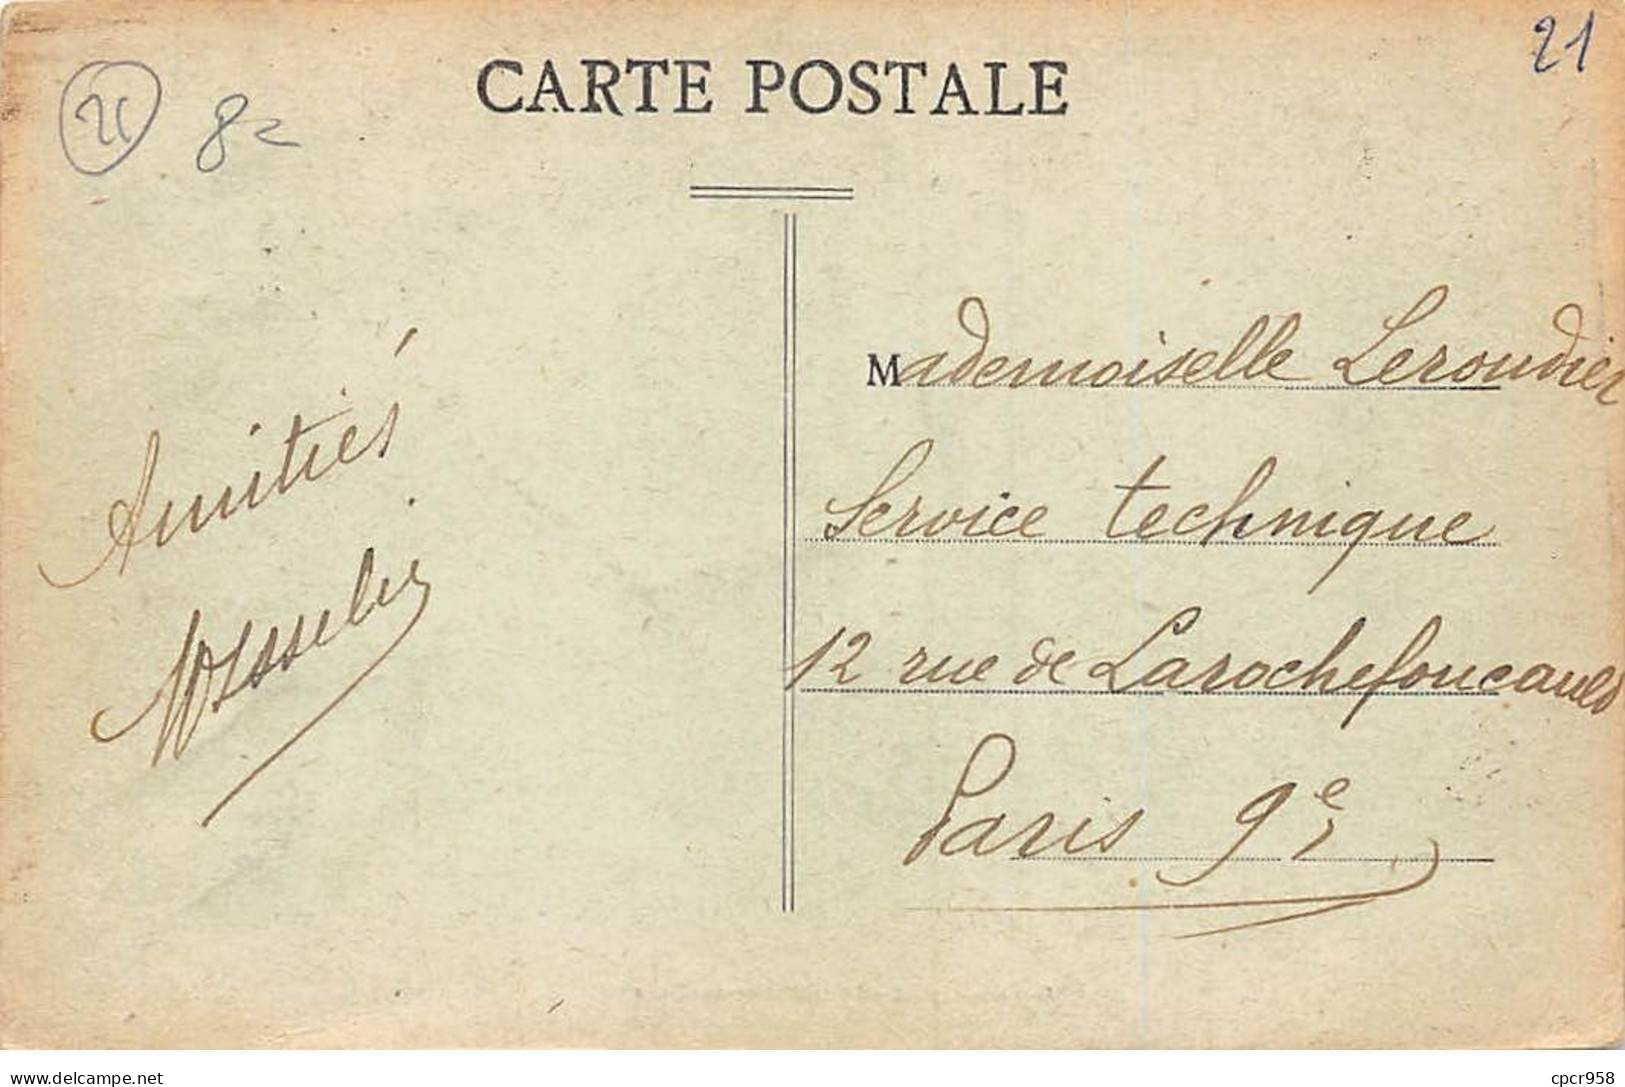 21
CARTE POSTALE
21
82
Mademoiselle Leroudier
Service technique
12 rue de Larochefoucauld
Paris 9e
Amitiés
delcampe.net
cpcr958